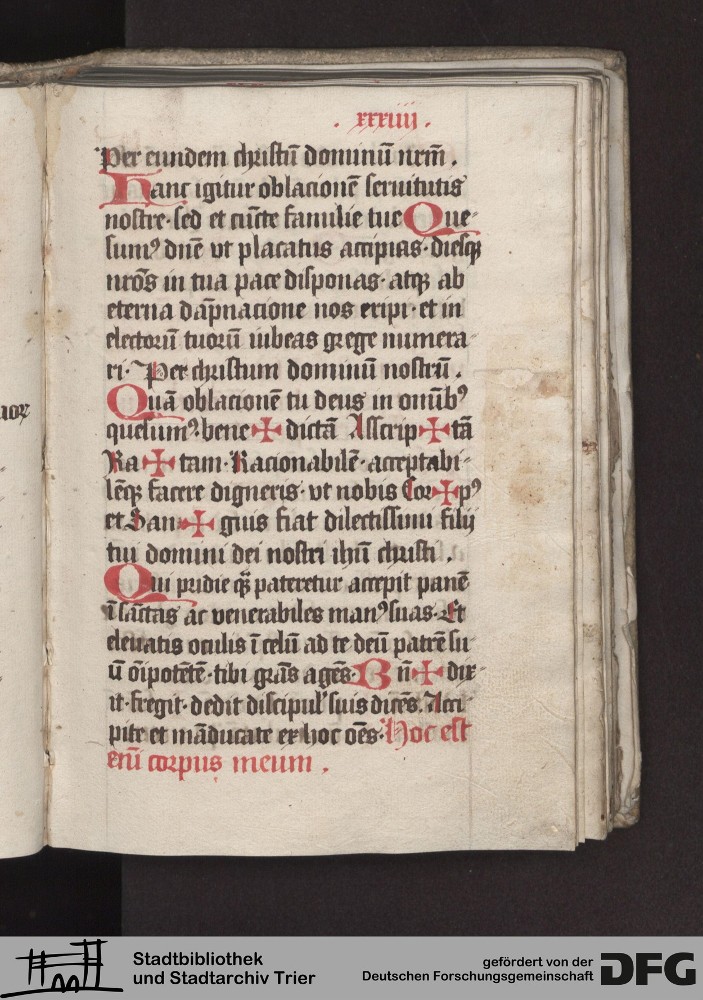 . xxxiiii .
Per eundem christū dominū nrm̄ .
Hanc igitur oblacionē seruitutis
nostre · sed et cūcte familie tue Que-
sumꝰ dn̄e vt placatus accipias · diesqꝫ
nr̄os in tua pace disponas · atqꝫ ab
eterna dāpnacione nos eripi · et in
electorū tuorū iubeas grege numera-
ri · Per christum dominū nostrū .
Quā oblacionē tu deus in om̄ibꝰ
quesumꝰ · bene ✠ dictā Asscrip ✠ tā
Ra ✠ tam · Racionabilē · acceptabi-
lēqꝫ facere digneris · vt nobis Cor ✠ pꝰ
et San ✠ guis fiat dilectissimi filij
tui domini dei nostri ihū christi .
Qui pridie qꝫ̄ pateretur accepit panē
ī sāctas ac venerabiles manꝰ suas · Et
eleuatis oculis ī celū ad te deū patrē su
ū oīpotētē · tibi grās agēs · Bn̄ ✠ dix-
it · fregit · dedit discipulꝰ suis dicēs . Acci
pite et māducate ex hoc oēs · Hoc est
eni̅ corpus meum .
Stadtbibliothek
und Stadtarchiv Trier
gefördert von der
Deutschen Forschungsgemeinschaft
DFG